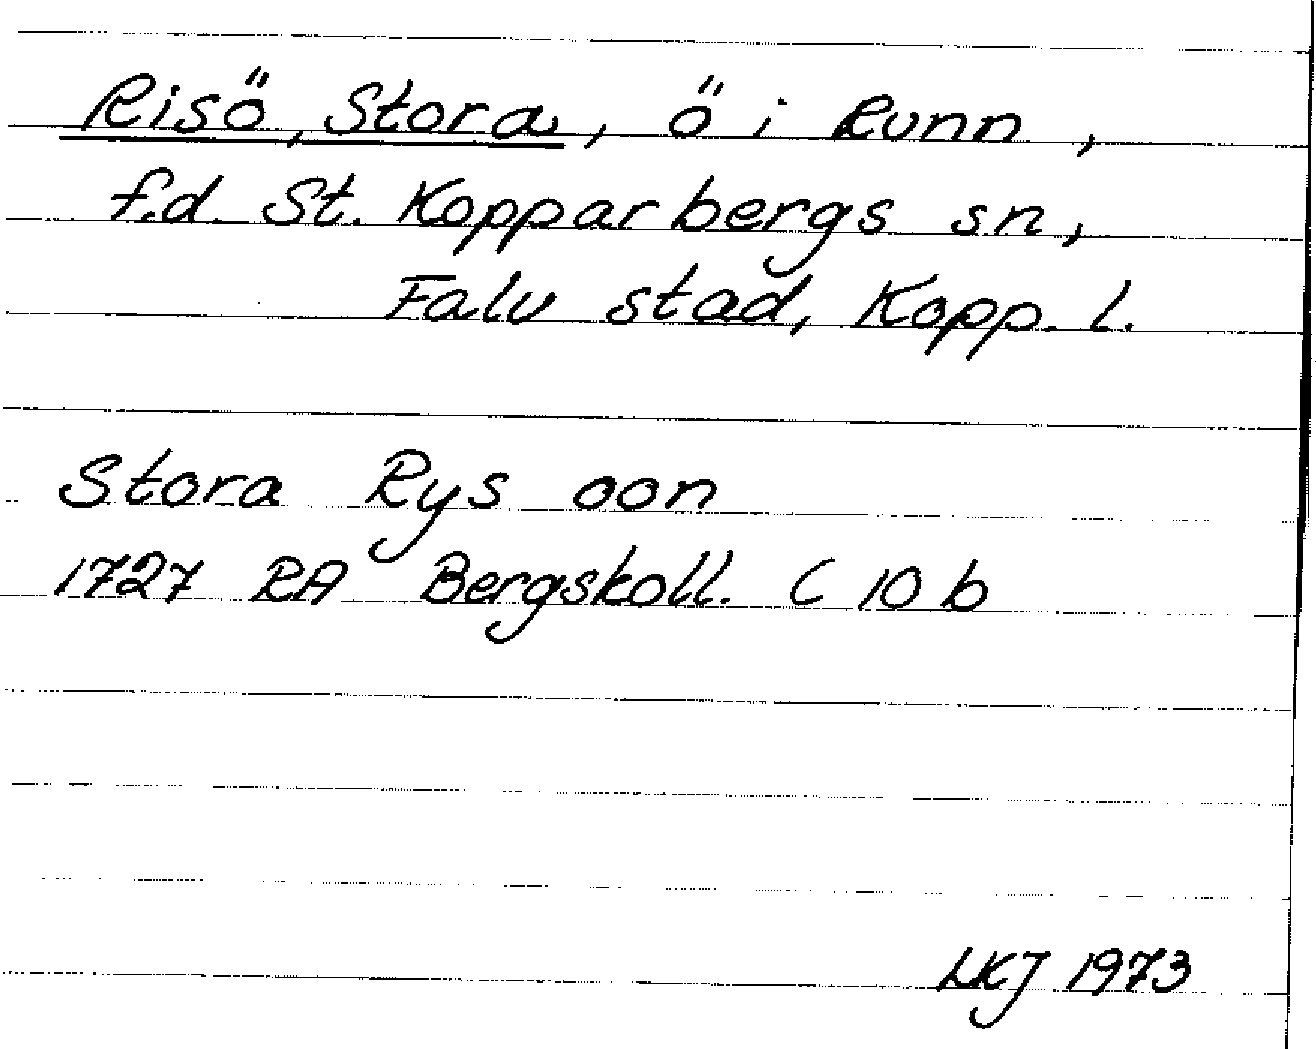 Risö, Stora, ö i Runn,
f.d. St. Kopparbergs sn,
Falu stad, Kopp. l.
Stora Rys oon
1727 RA Bergskoll. C 10 b
LKJ 1973